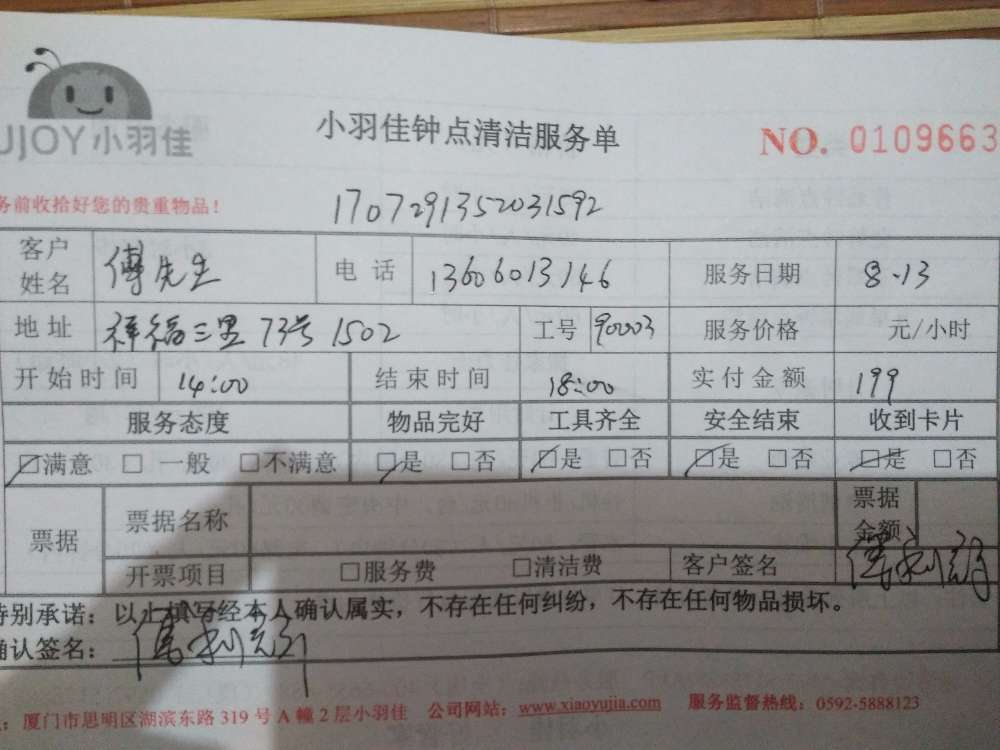 UJOY小羽佳
小羽佳钟点清洁服务单
NO. 0109663
务前收拾好您的贵重物品！
1707291352031592
客户姓名 傅先生 电话 13606013146 服务日期 8.13
地址 祥福三里73号1502 工号 90003 服务价格 元/小时
开始时间 14:00 结束时间 18:00 实付金额 199
服务态度 物品完好 工具齐全 安全结束 收到卡片
□满意 □一般 □不满意 □是 □否 □是 □否 □是 □否 □是 □否
票据 票据名称 票据金额
开票项目 □服务费 □清洁费 客户签名
特别承诺：以上填写经本人确认属实，不存在任何纠纷，不存在任何物品损坏。
确认签名：
：厦门市思明区湖滨东路319号A幢2层小羽佳 公司网站：www.xiaoyujia.com 服务监督热线：0592-5888123